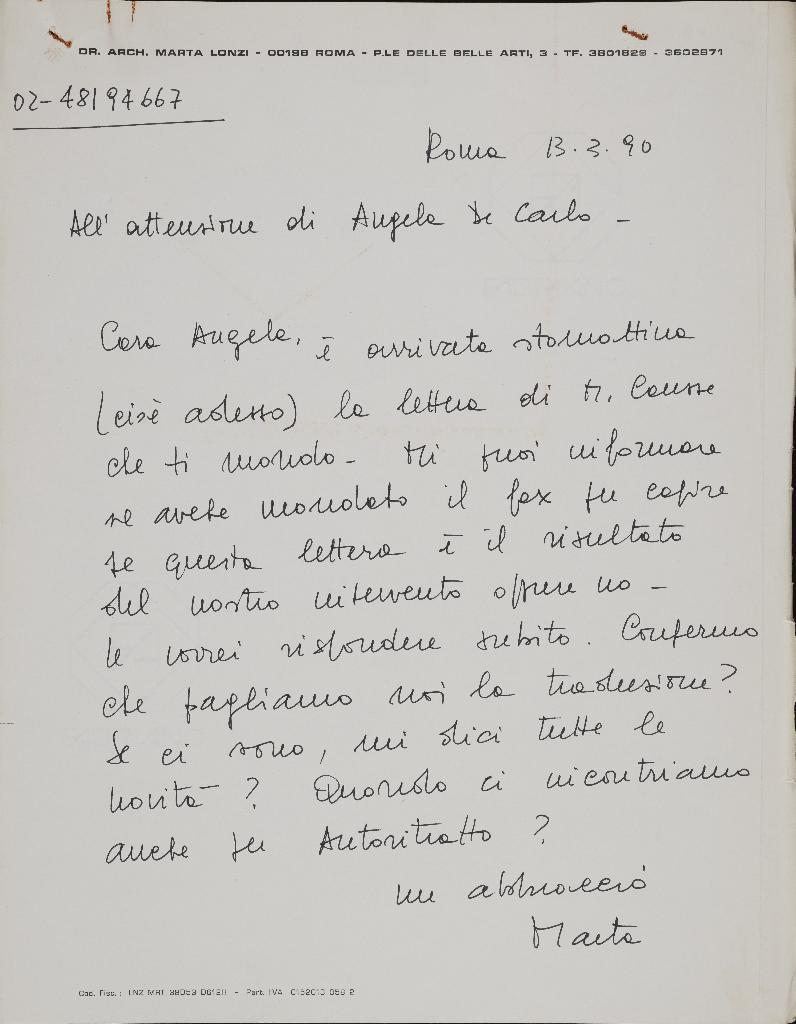 DR. ARCH. MARTA LONZI - 00198 ROMA - P.LE DELLE BELLE ARTI, 3 - TF. 3601829 - 3602971
02-48194667
Roma 13.3.90
All'attenzione di Angela De Carlo -
Cara Angela, è arrivata stamattina
(cioè adesso) la lettera di M. Causse
che ti mando - Mi puoi informare
se avete mandato il fax per capire
se questa lettera è il risultato
del nostro intervento oppure no -
le vorrei rispondere subito. Confermo
che paghiamo noi la traduzione?
Se ci sono, mi dici tutte le
novità? Quando ci incontriamo
anche per Autoritratto?
un abbraccio
Marta
Cod. Fisc.: LNZ MRT 38D53 D612II - Part. IVA